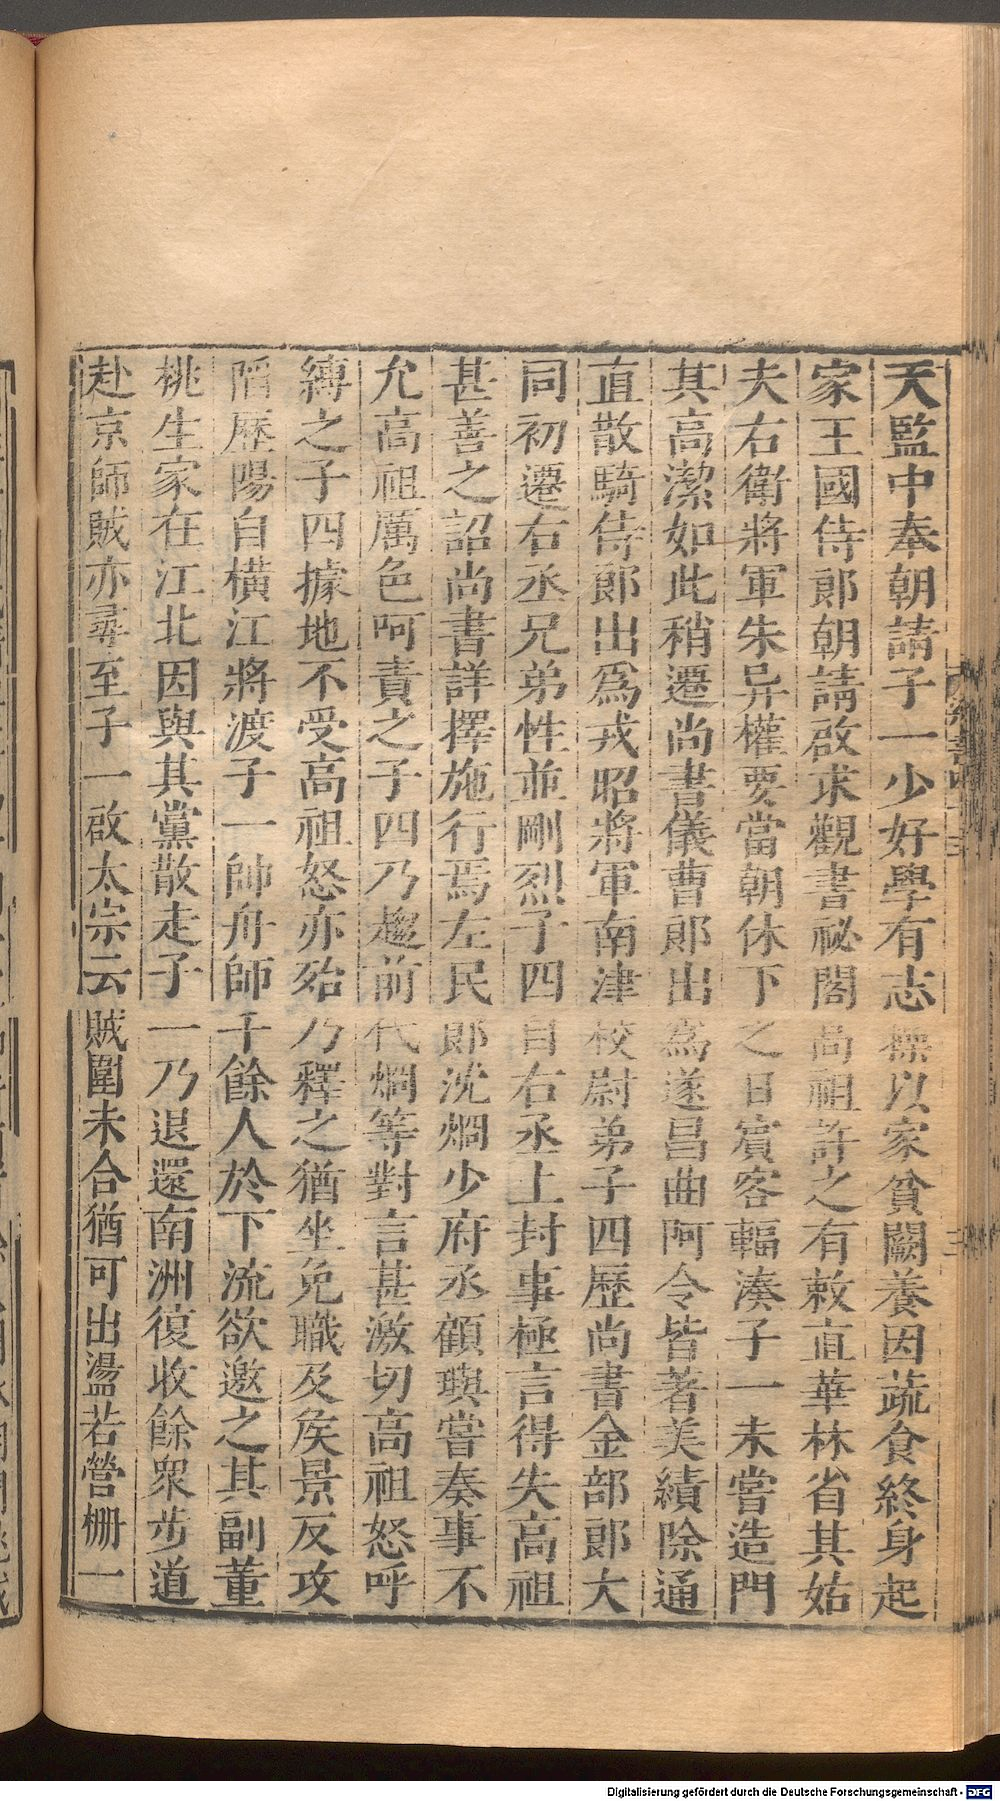 天監中奉朝請子一少好學有志操以家貧闕養因蔬食終身起
家王國侍郎朝請啟求觀書祕閣高祖許之有敕直華林省其姑
夫右衛將軍朱异權要當朝休下之日賓客輻湊子一未嘗造門
其高潔如此稍遷尚書儀曹郎出為遂昌曲阿令皆著美績除通
直散騎侍郎出為戎昭將軍南津校尉弟子四歷尚書金部郎大
同初遷右丞兄弟性並剛烈子四自右丞上封事極言得失高祖
甚善之詔尚書詳擇施行焉左民郎沈烱少府丞顧璵嘗奏事不
允高祖厲色呵責之子四乃趨前代烱等對言甚激切高祖怒呼
縛之子四據地不受高祖怒亦殆乃釋之猶坐免職及侯景反攻
陷歷陽自橫江將渡子一帥舟師千餘人於下流欲邀之其副董
桃生家在江北因與其黨散走子一乃退還南洲復收餘眾步道
赴京師賊亦尋至子一啟太宗云賊圍未合猶可出盪若營柵一
Digitalisierung gefördert durch die Deutsche Forschungsgemeinschaft - DFG